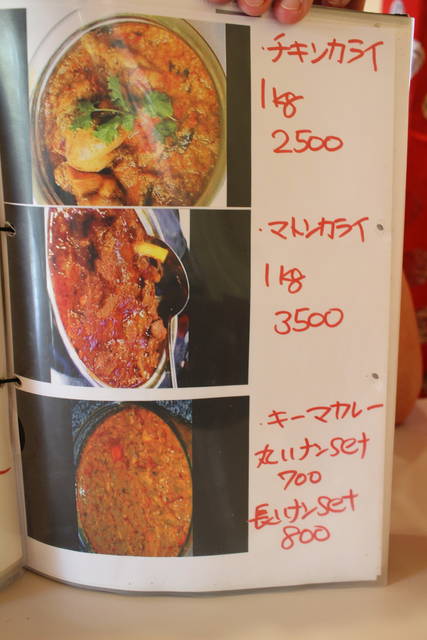 ・チキンカライ
1kg
2500
・マトンカライ
1kg
3500
・キーマカレー
丸いナンset
700
長いナンset
800